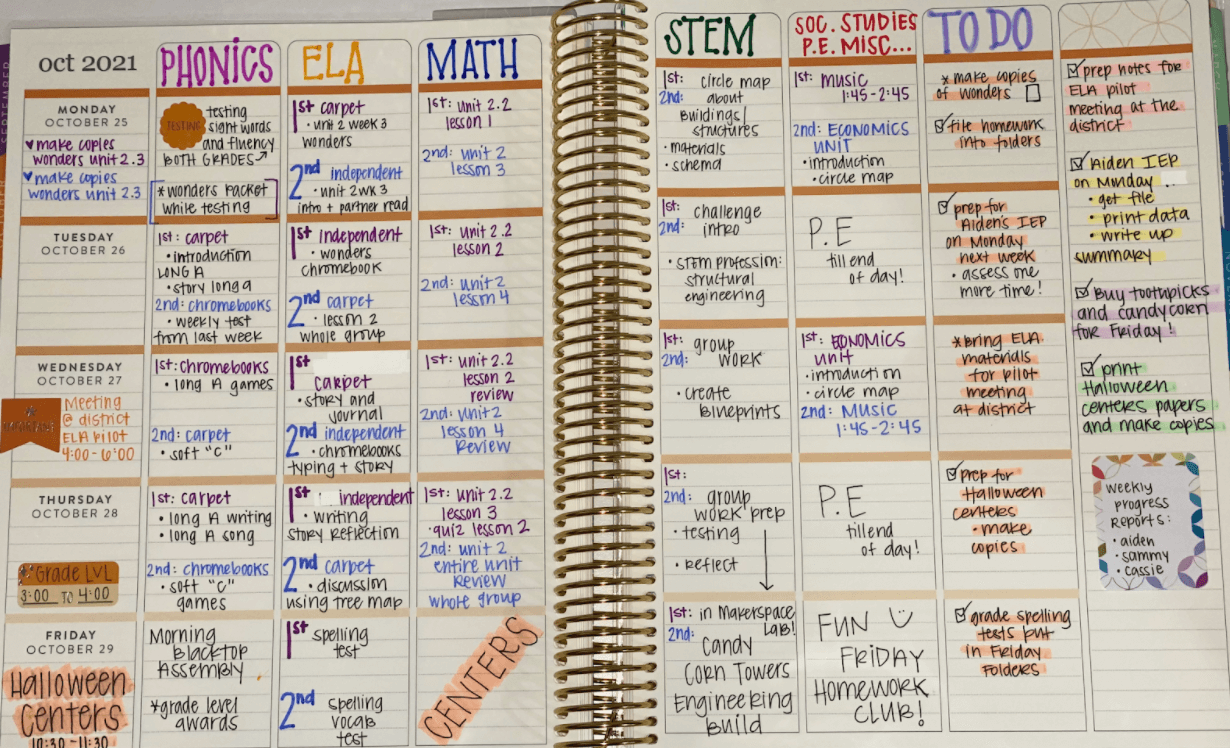 oct 2021
PHONICS
ELA
MATH
STEM
SOC. STUDIES
P.E. MISC...
TO DO
MONDAY
OCTOBER 25
make copies
wonders unit 2.3
make copies
wonders unit 2.3
TESTING
testing
sight words
and fluency
BOTH GRADES
*wonders packet
while testing
1st carpet
• unit 2 week 3
wonders
2nd independent
• unit 2 wk 3
intro + partner read
1st: unit 2.2
lesson 1
2nd: unit 2
lesson 3
1st: circle map
2nd: about
Buildings/
structures
• materials
• schema
1st: music
1:45-2:45
2nd: ECONOMICS
UNIT
• introduction
• circle map
* make copies
of wonders
file homework
into folders
prep notes for
ELA pilot
meeting at the
district
Aiden IEP
on Monday
• get file
• print data
• write up
summary
TUESDAY
OCTOBER 26
1st: carpet
• introduction
LONG A
• story long a
2nd: chromebooks
• weekly test
from last week
1st independent
• wonders
chromebook
2nd carpet
• lesson 2
whole group
1st: unit 2.2
lesson 2
2nd: unit 2
lesson 4
1st: challenge
2nd: intro
• STEM profession:
structural
engineering
P.E
till end
of day!
prep for
Aiden's IEP
on Monday
next week
• assess one
more time!
Buy toothpicks
and candycorn
for Friday!
WEDNESDAY
OCTOBER 27
Meeting
@ district
ELA pilot
4:00-6:00
1st: chromebooks
• long A games
2nd: carpet
• soft "C"
1st
carpet
• story and
journal
2nd independent
• chromebooks
typing + story
1st: unit 2.2
lesson 2
review
2nd: unit 2
lesson 4
Review
1st: group
2nd: work
• create
blueprints
1st: ECONOMICS
unit
• introduction
• circle map
2nd: MUSIC
1:45-2:45
*Bring ELA
materials
for pilot
meeting
at district
print
Halloween
centers papers
and make copies
THURSDAY
OCTOBER 28
Grade LVL
3:00 TO 4:00
1st: carpet
• long A writing
• long A song
2nd: chromebooks
• soft "C"
games
1st independent
• writing
story reflection
2nd carpet
• discussion
using tree map
1st: unit 2.2
lesson 3
• quiz lesson 2
2nd: unit 2
entire unit
Review
whole group
1st:
2nd: group
work prep
• testing
• reflect
P.E
till end
of day!
prep for
Halloween
centers
• make
copies
weekly
progress
Reports:
• aiden
• sammy
• cassie
FRIDAY
OCTOBER 29
Halloween
Centers
10:30-11:30
Morning
Blacktop
Assembly
*grade level
awards
1st spelling
test
2nd spelling
vocab
test
CENTERS
1st: in Makerspace
2nd: LAB!
Candy
Corn Towers
Engineering
Build
FUN
FRIDAY
HOMEWORK
CLUB!
grade spelling
tests put
in Friday
Folders